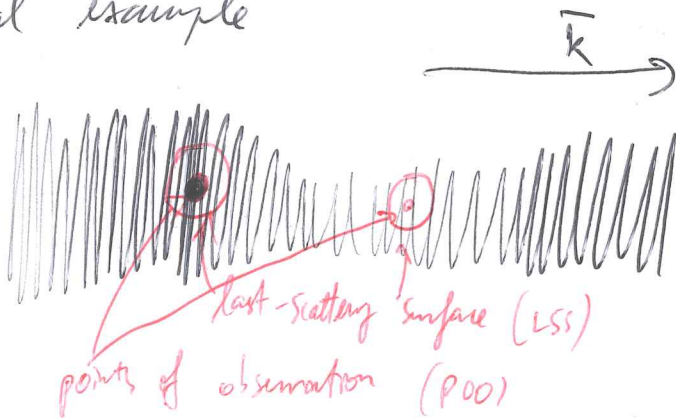 example
k̄
last-scattery surface (LSS)
points of observation (POO)